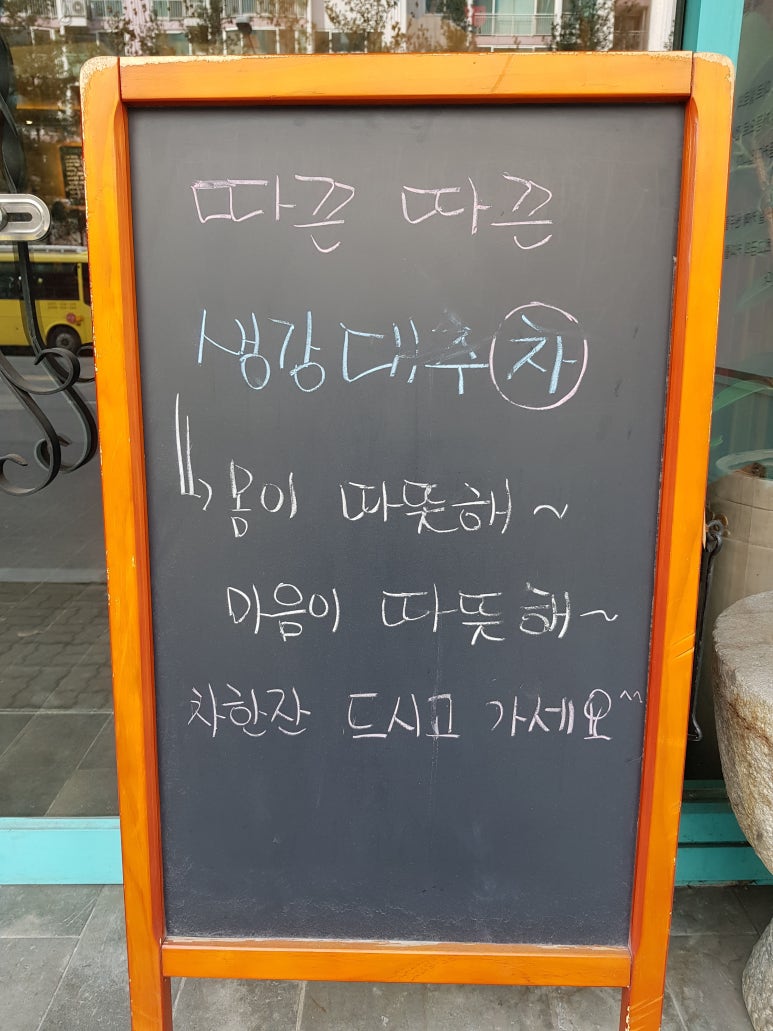 따끈 따끈
생강대추차
↳몸이 따뜻해~
마음이 따뜻해~
차한잔 드시고 가세요^^